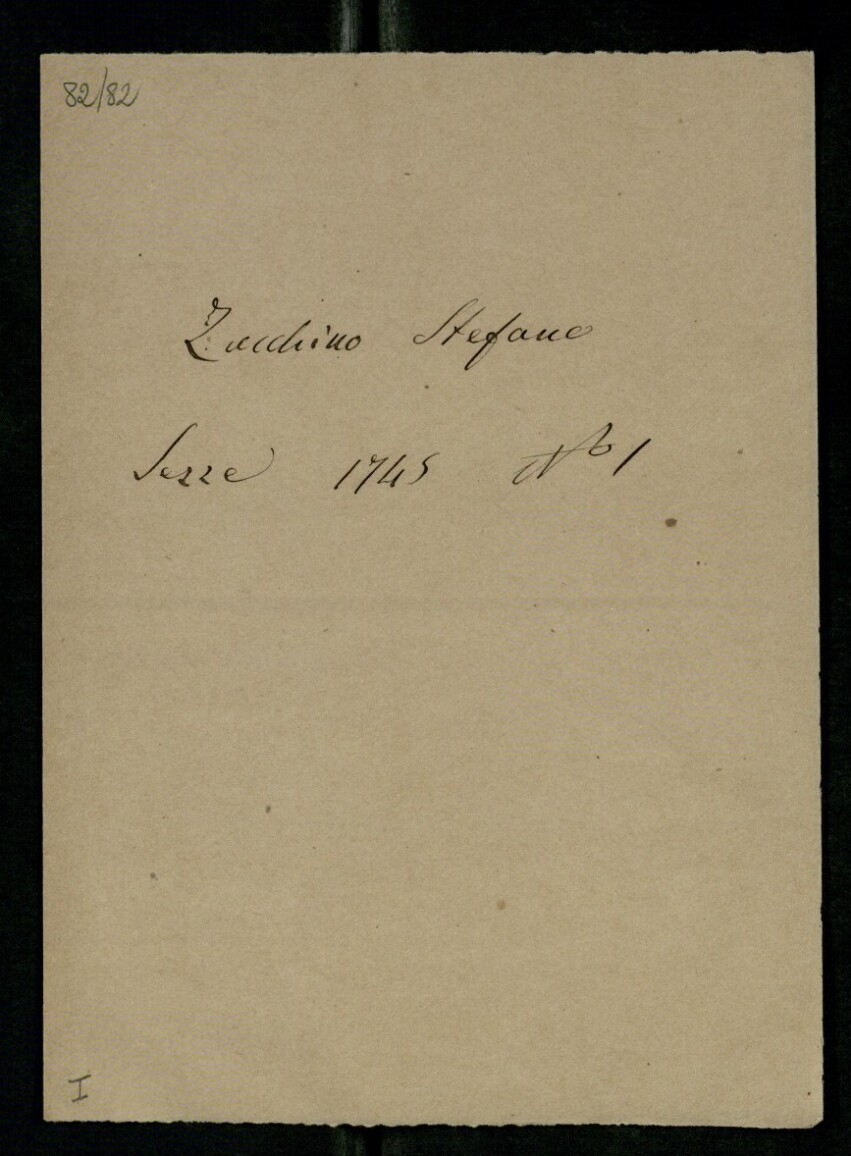 82/82
Zucchino Stefano
Sezze 1745 No 1
I